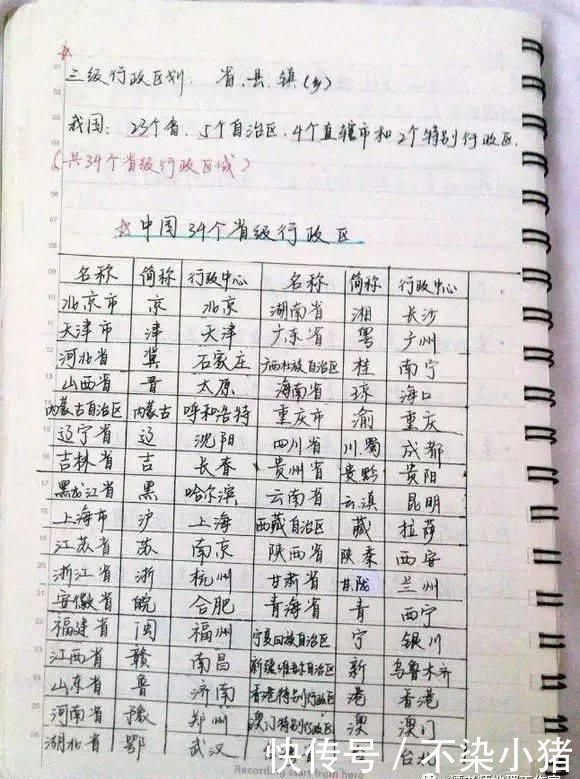 三级行政区划. 省、县、镇(乡)
我国: 23个省、5个自治区、4个直辖市和2个特别行政区.
(共34个省级行政区域)
☆中国34个省级行政区
名称 简称 行政中心 名称 简称 行政中心
北京市 京 北京 湖南省 湘 长沙
天津市 津 天津 广东省 粤 广州
河北省 冀 石家庄 广西壮族自治区 桂 南宁
山西省 晋 太原 海南省 琼 海口
内蒙古自治区 内蒙古 呼和浩特 重庆市 渝 重庆
辽宁省 辽 沈阳 四川省 川.蜀 成都
吉林省 吉 长春 贵州省 贵黔 贵阳
黑龙江省 黑 哈尔滨 云南省 云.滇 昆明
上海市 沪 上海 西藏自治区 藏 拉萨
江苏省 苏 南京 陕西省 陕.秦 西安
浙江省 浙 杭州 甘肃省 甘.陇 兰州
安徽省 皖 合肥 青海省 青 西宁
福建省 闽 福州 宁夏回族自治区 宁 银川
江西省 赣 南昌 新疆维吾尔自治区 新 乌鲁木齐
山东省 鲁 济南 香港特别行政区 港 香港
河南省 豫 郑州 澳门特别行政区 澳 澳门
湖北省 鄂 武汉
快传号 / 不染小猪
Recording start from here